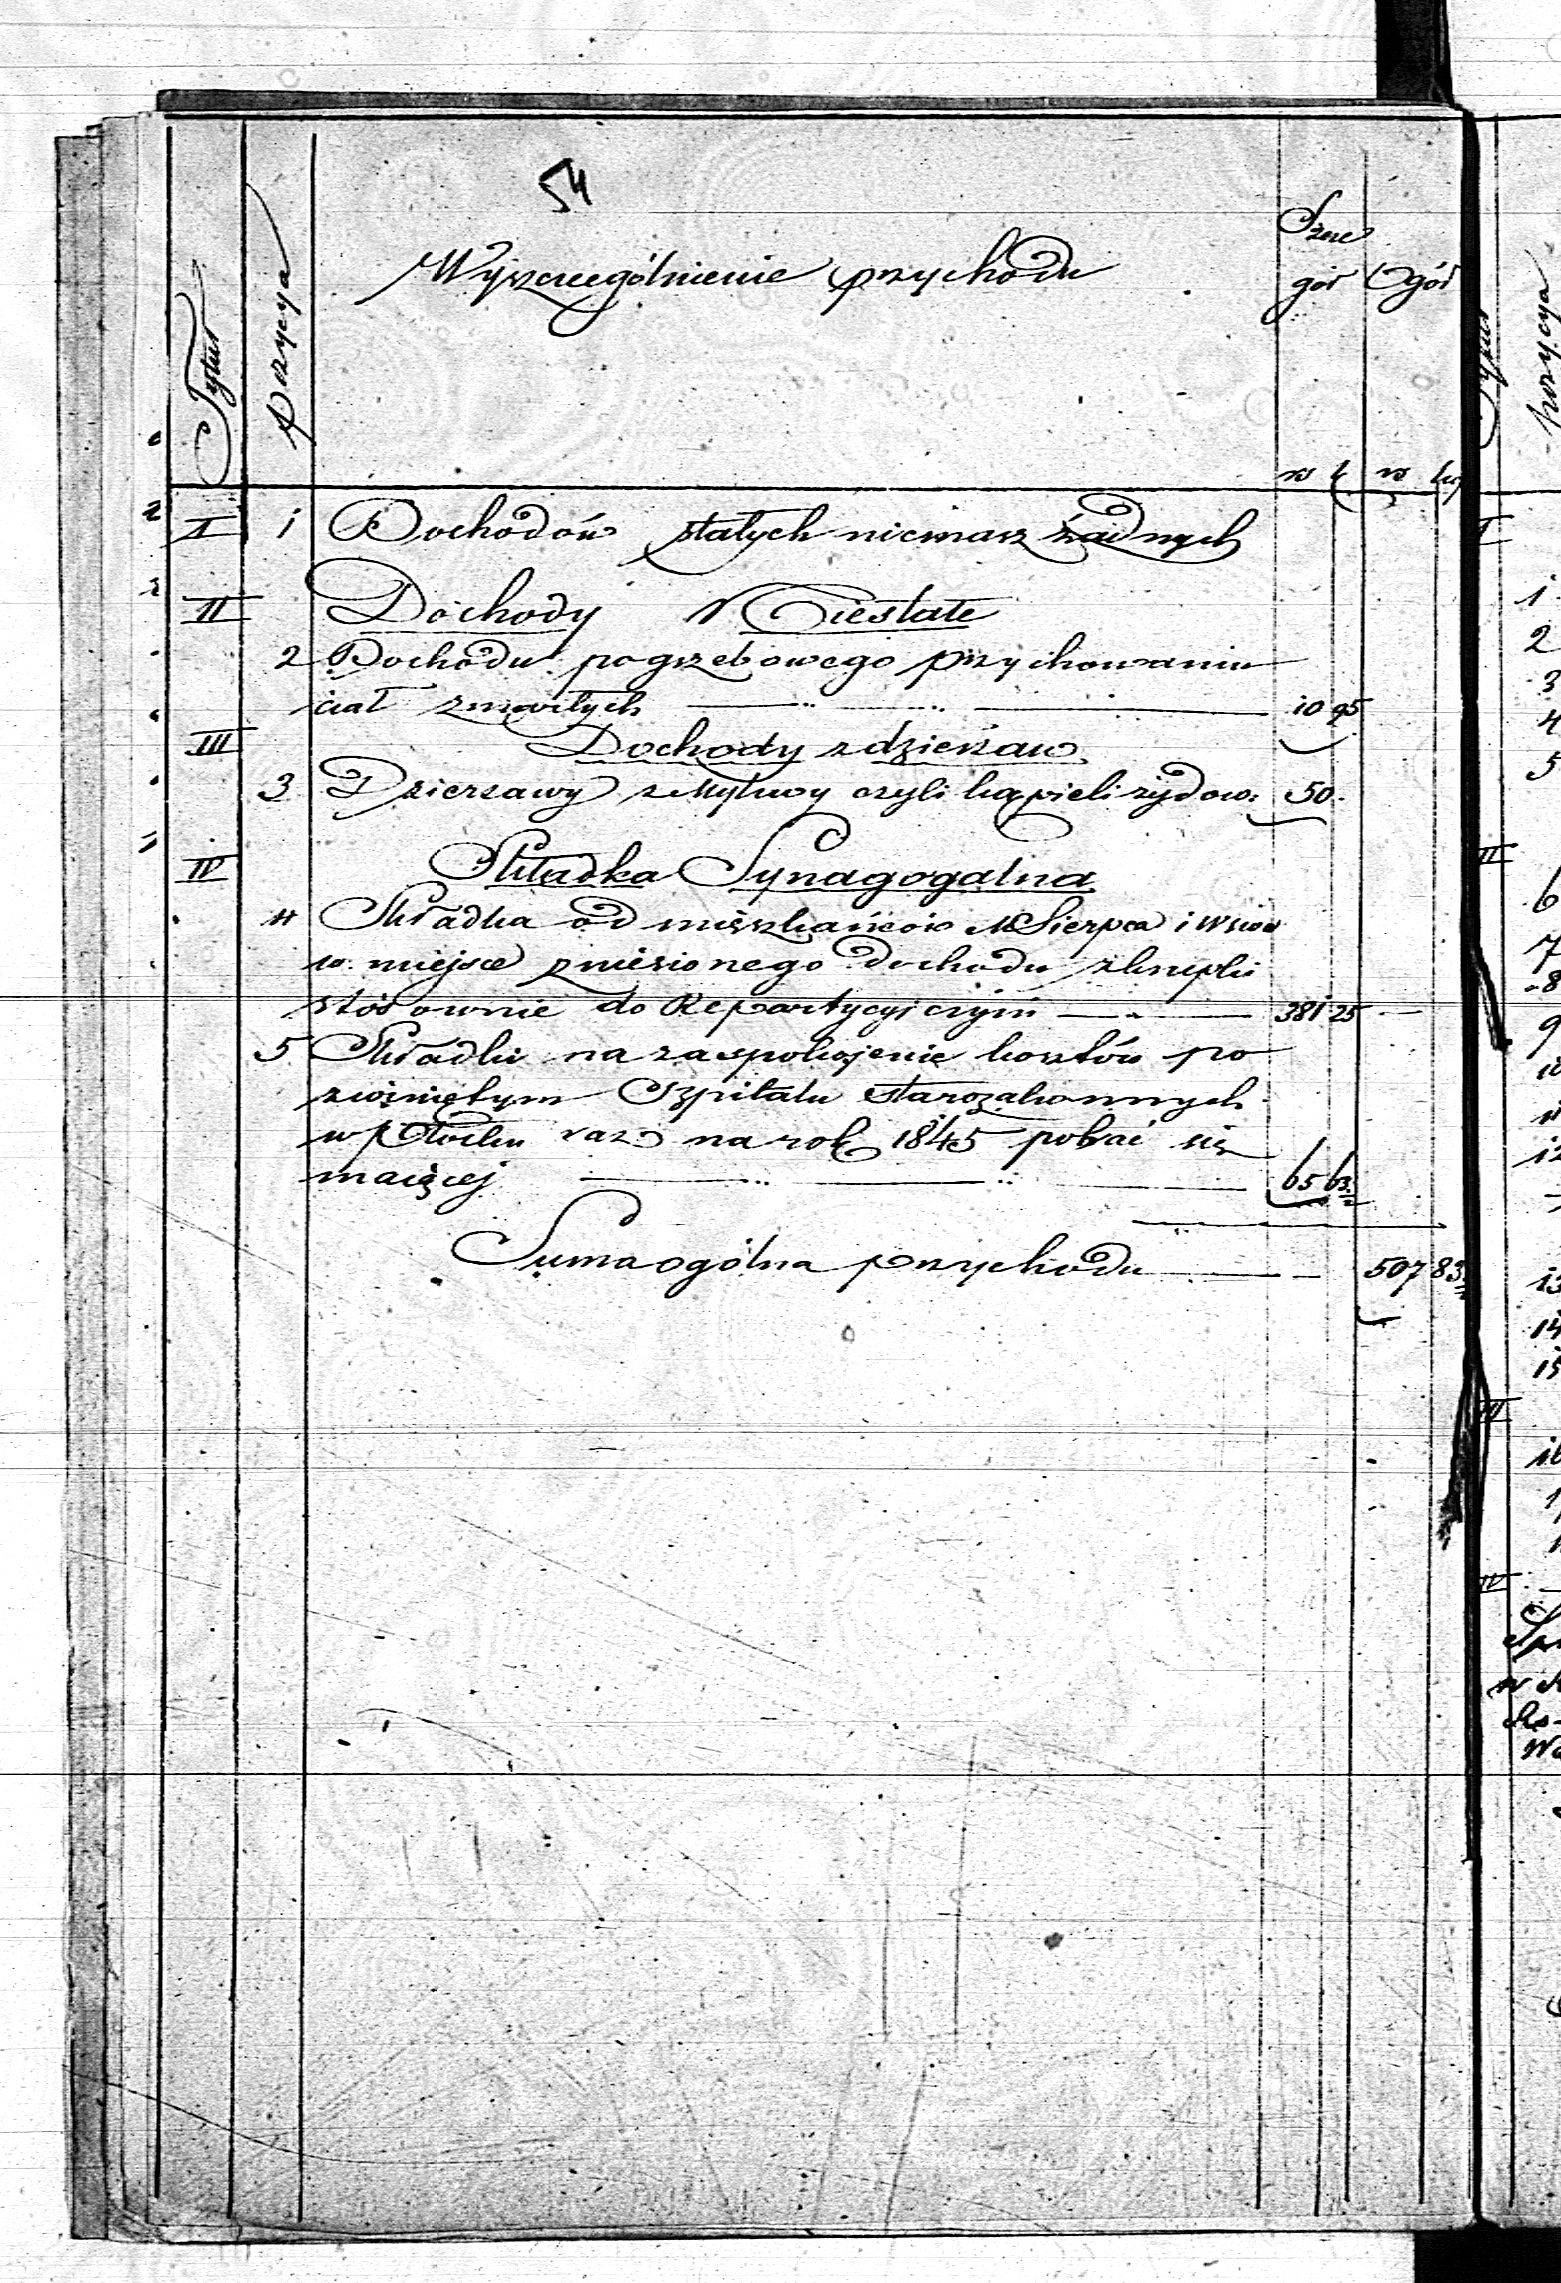 54
Tytuł
pozycya
Wyszczególnienie przychodu
Szcze
gół
Ogół
rs k rs kop
I 1 Dochodów stałych niemasz żadnych
II Dochody Niestałe
2 Dochodu pogrzebowego przy chowaniu
ciał zmarłych 10 95
III Dochody z dzierżaw
3 Dzierzawy z Mykwy czyli kąpieli żydow: 50.
IV Składka Synagogalna
4 Składka od mieszkańców M Sierpca i wsiów
w miejsce zniesionego dochodu
stósownie do Repartycyi czyni 381 25
5 Składki na zaspokojenie kosztów po
zwiniętym Szpitalu starozakonnych
w Płocku raz na rok 1845 pobrać się
maiącej 65 63
Suma ogólna przychodu 507 83
Tytuł
pozycya
I
1
2
3
4
5
II
6
7
8
9
10
11
12
13
14
15
III
16
IV